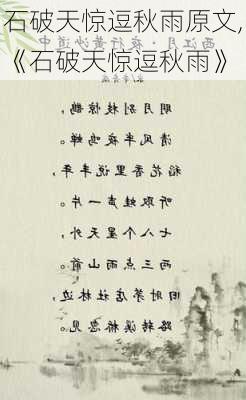 石破天惊逗秋雨原文,
《石破天惊逗秋雨》
西江月·夜行黄沙道中
明月别枝惊鹊,
清风半夜鸣蝉。
稻花香里说丰年,
听取蛙声一片。
七八个星天外,
两三点雨山前。
旧时茅店社林边,
路转溪桥忽见。